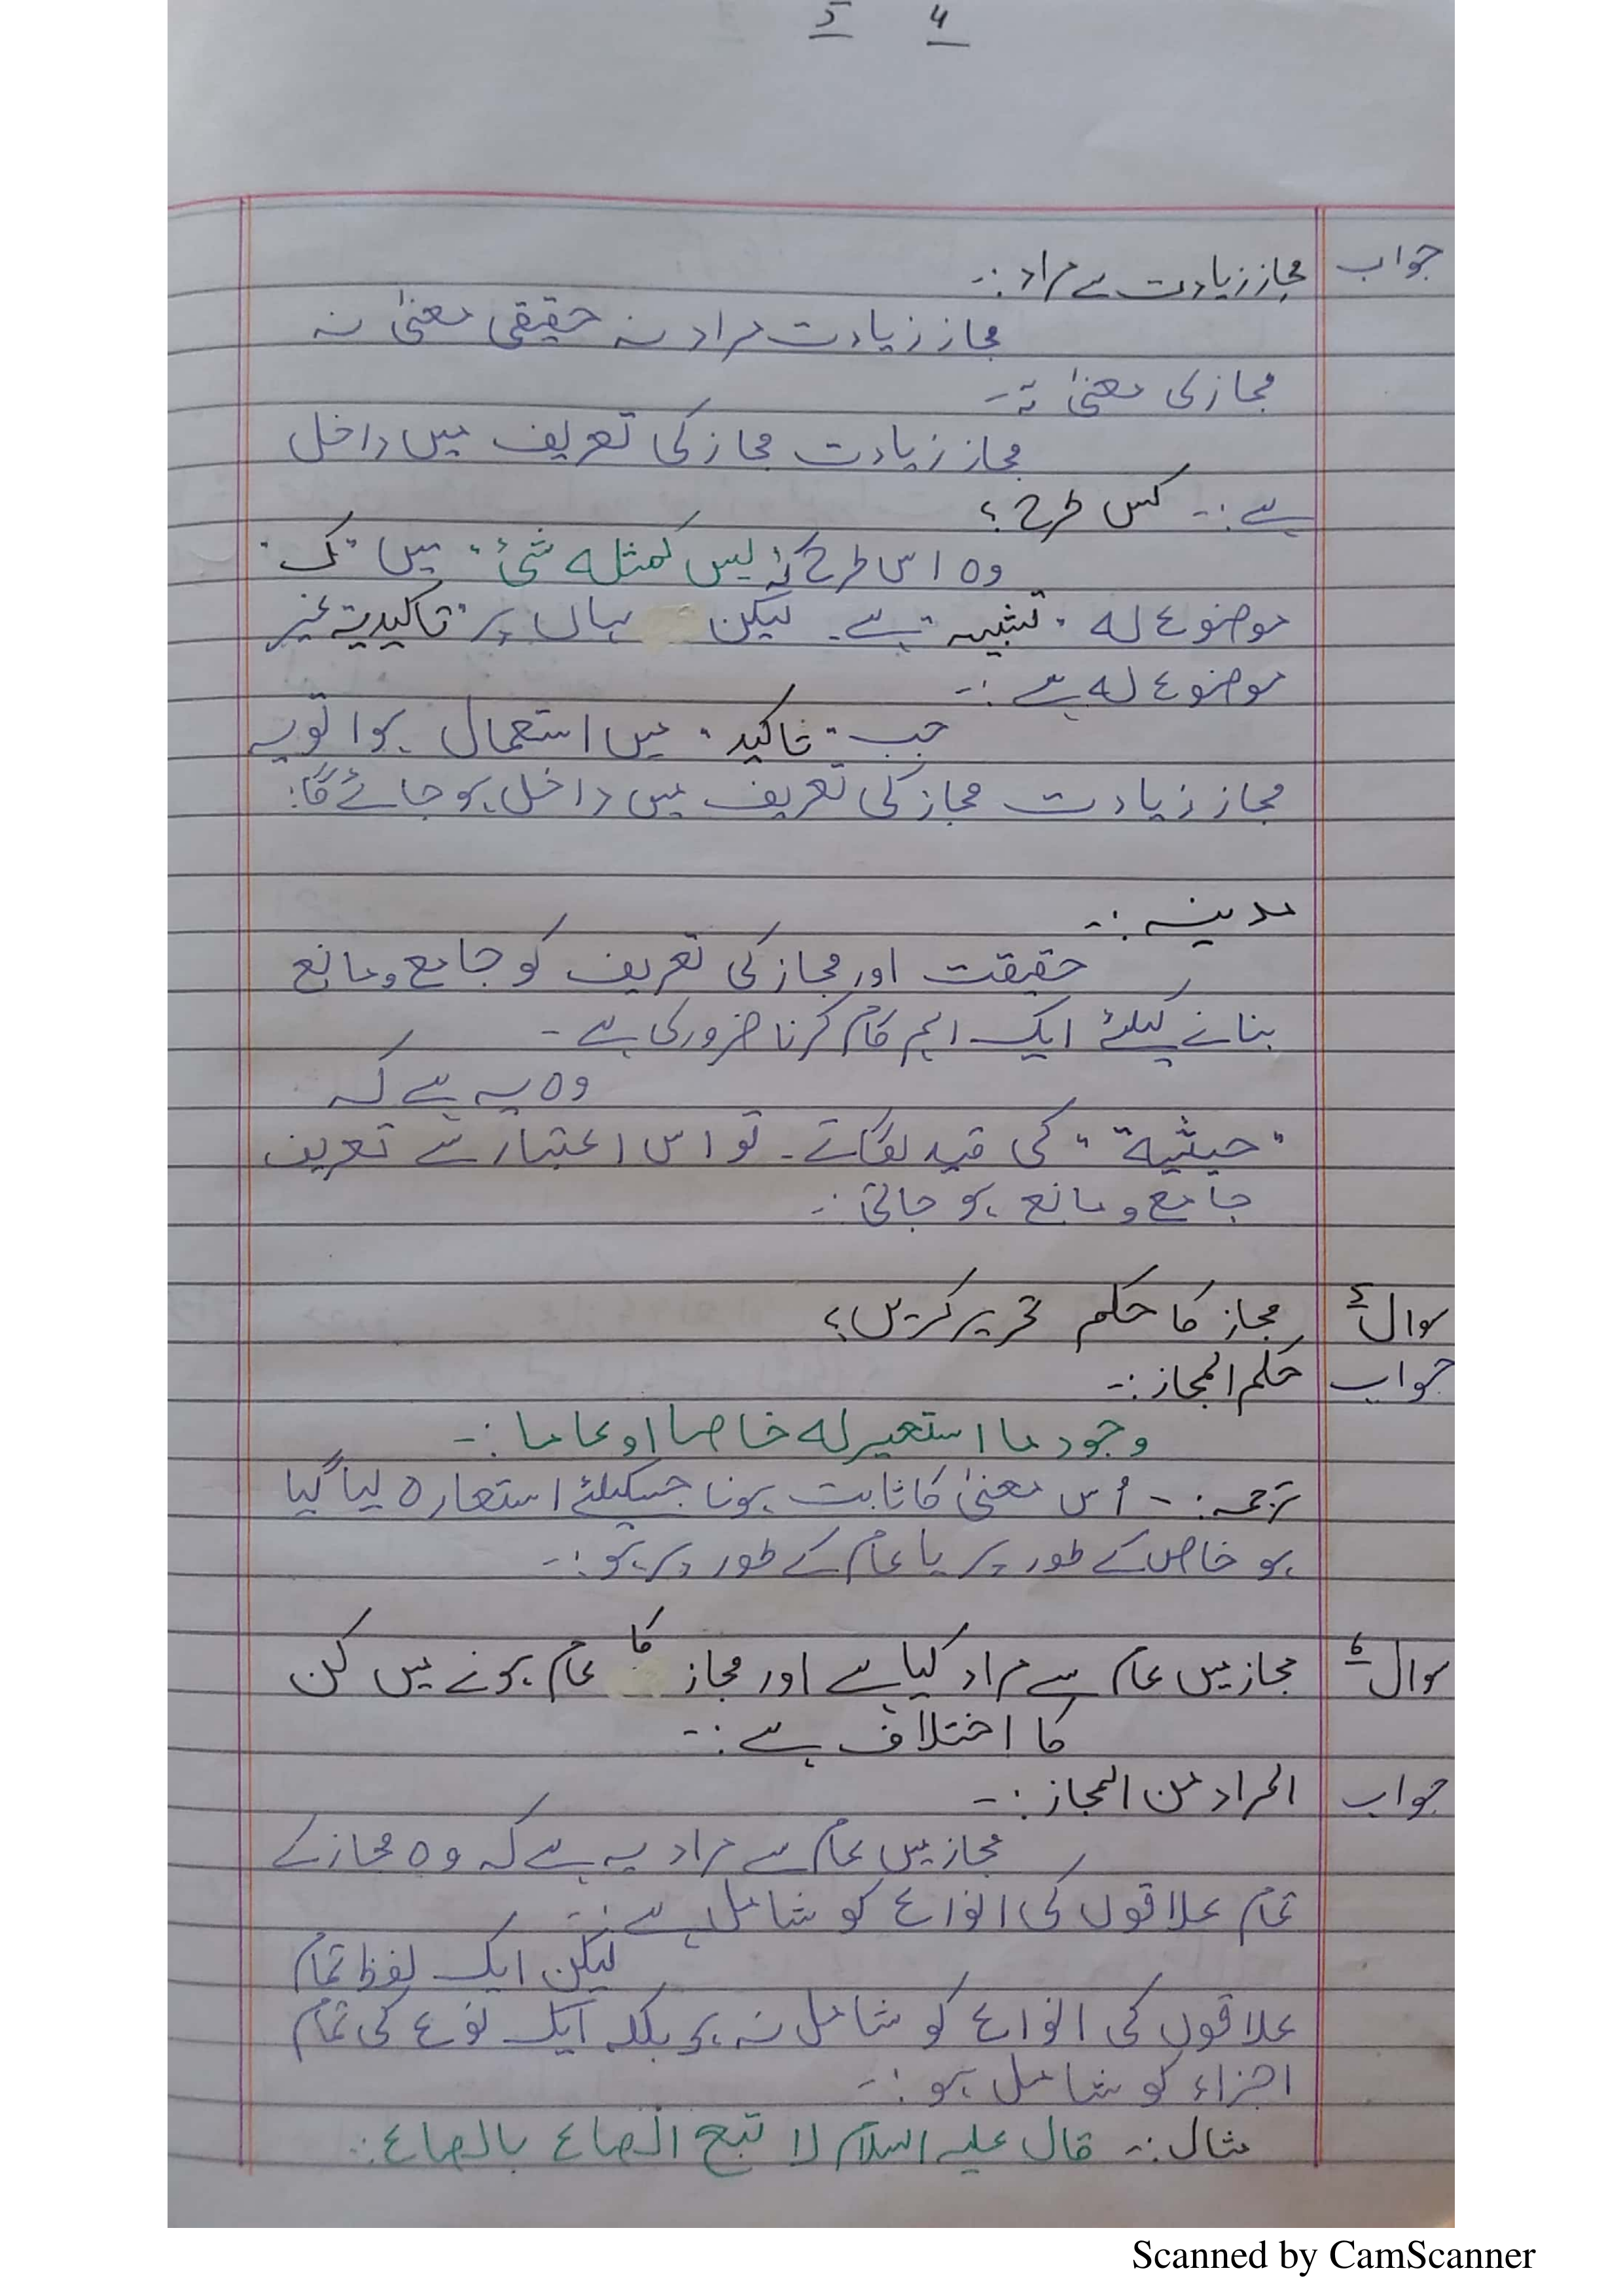 5 4
جواب مجاز زیادت سے مراد :-
مجاز زیادت مراد نہ حقیقی معنیٰ نہ
مجاز کی معنیٰ نہ -
مجاز زیادت مجاز کی تعریف میں داخل
ہے :- کس طرح ؟
وہ اس طرح کہ "لیس کمثلہ شئ" میں "ک"
موضوع لہ "تشبیہ" ہے۔ لیکن یہاں پر "تاکید یہ غیر
موضوع لہ ہے :-
جب "تاکید" میں استعمال ہوا تو یہ
مجاز زیادت مجاز کی تعریف میں داخل ہو جائے گا :
مدینہ :-
حقیقت اور مجاز کی تعریف کو جامع و مانع
بنانے کیلئے ایک اہم کام کرنا ضروری ہے -
وہ یہ ہے کہ
"حیثیة" کی قید لگاتے - تو اس اعتبار سے تعریف
جامع و مانع ہو جاتی :-
سوال ۵ مجاز کا حکم تحریر کریں ؟
جواب حکم المجاز :-
وجود ما استعیر لہ خاصا او عاما :-
ترجمہ :- اُس معنیٰ کا ثابت ہونا جسکیلئے استعارہ لیا گیا
ہو خاص کے طور پر یا عام کے طور پر ہو :-
سوال ۶ مجاز میں عام سے مراد کیا ہے اور مجاز کا عام ہونے میں کن
کا اختلاف ہے :-
جواب المراد من المجاز :-
مجاز میں عام سے مراد یہ ہے کہ وہ مجاز کے
تمام علاقوں کی انواع کو شامل ہے :-
لیکن ایک لفظ تمام
علاقوں کی انواع کو شامل نہ ہو بلکہ ایک نوع کی تمام
اجزاء کو شامل ہو :-
مثال :- قال علیہ السلام لا تبع الصاع بالصاع :-
Scanned by CamScanner